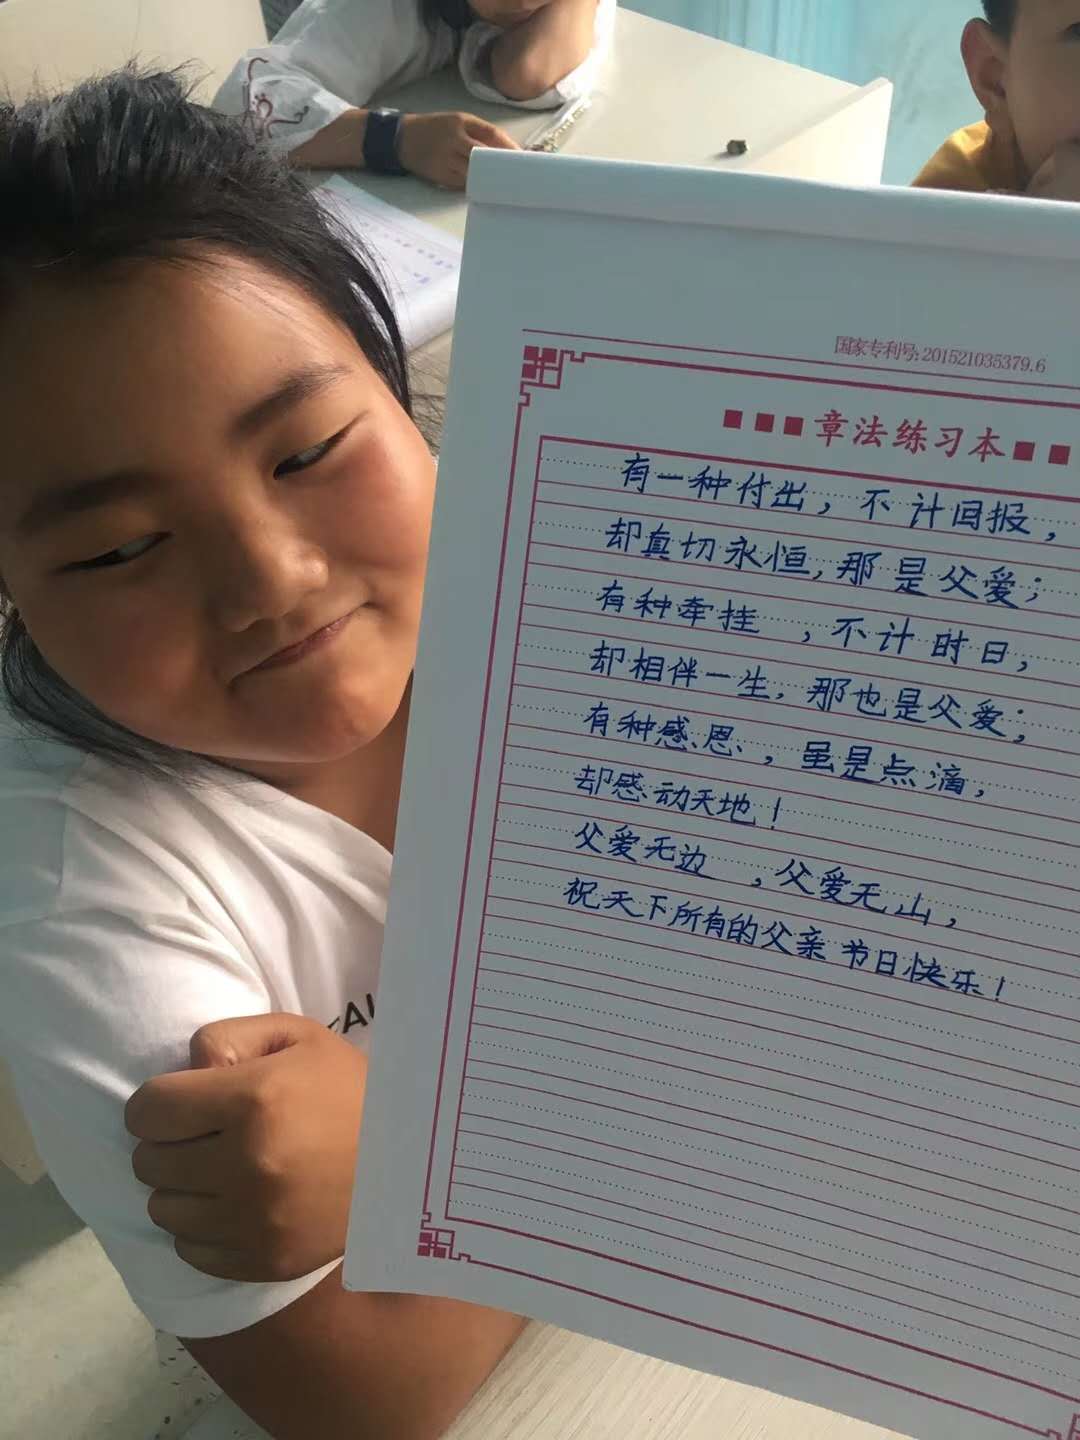 国家专利号:201521035379.6
■■■章法练习本■■
有一种付出，不计回报，
却真切永恒，那是父爱；
有种牵挂，不计时日，
却相伴一生，那也是父爱；
有种感恩，虽是点滴，
却感动天地！
父爱无边，父爱无山，
祝天下所有的父亲节日快乐！